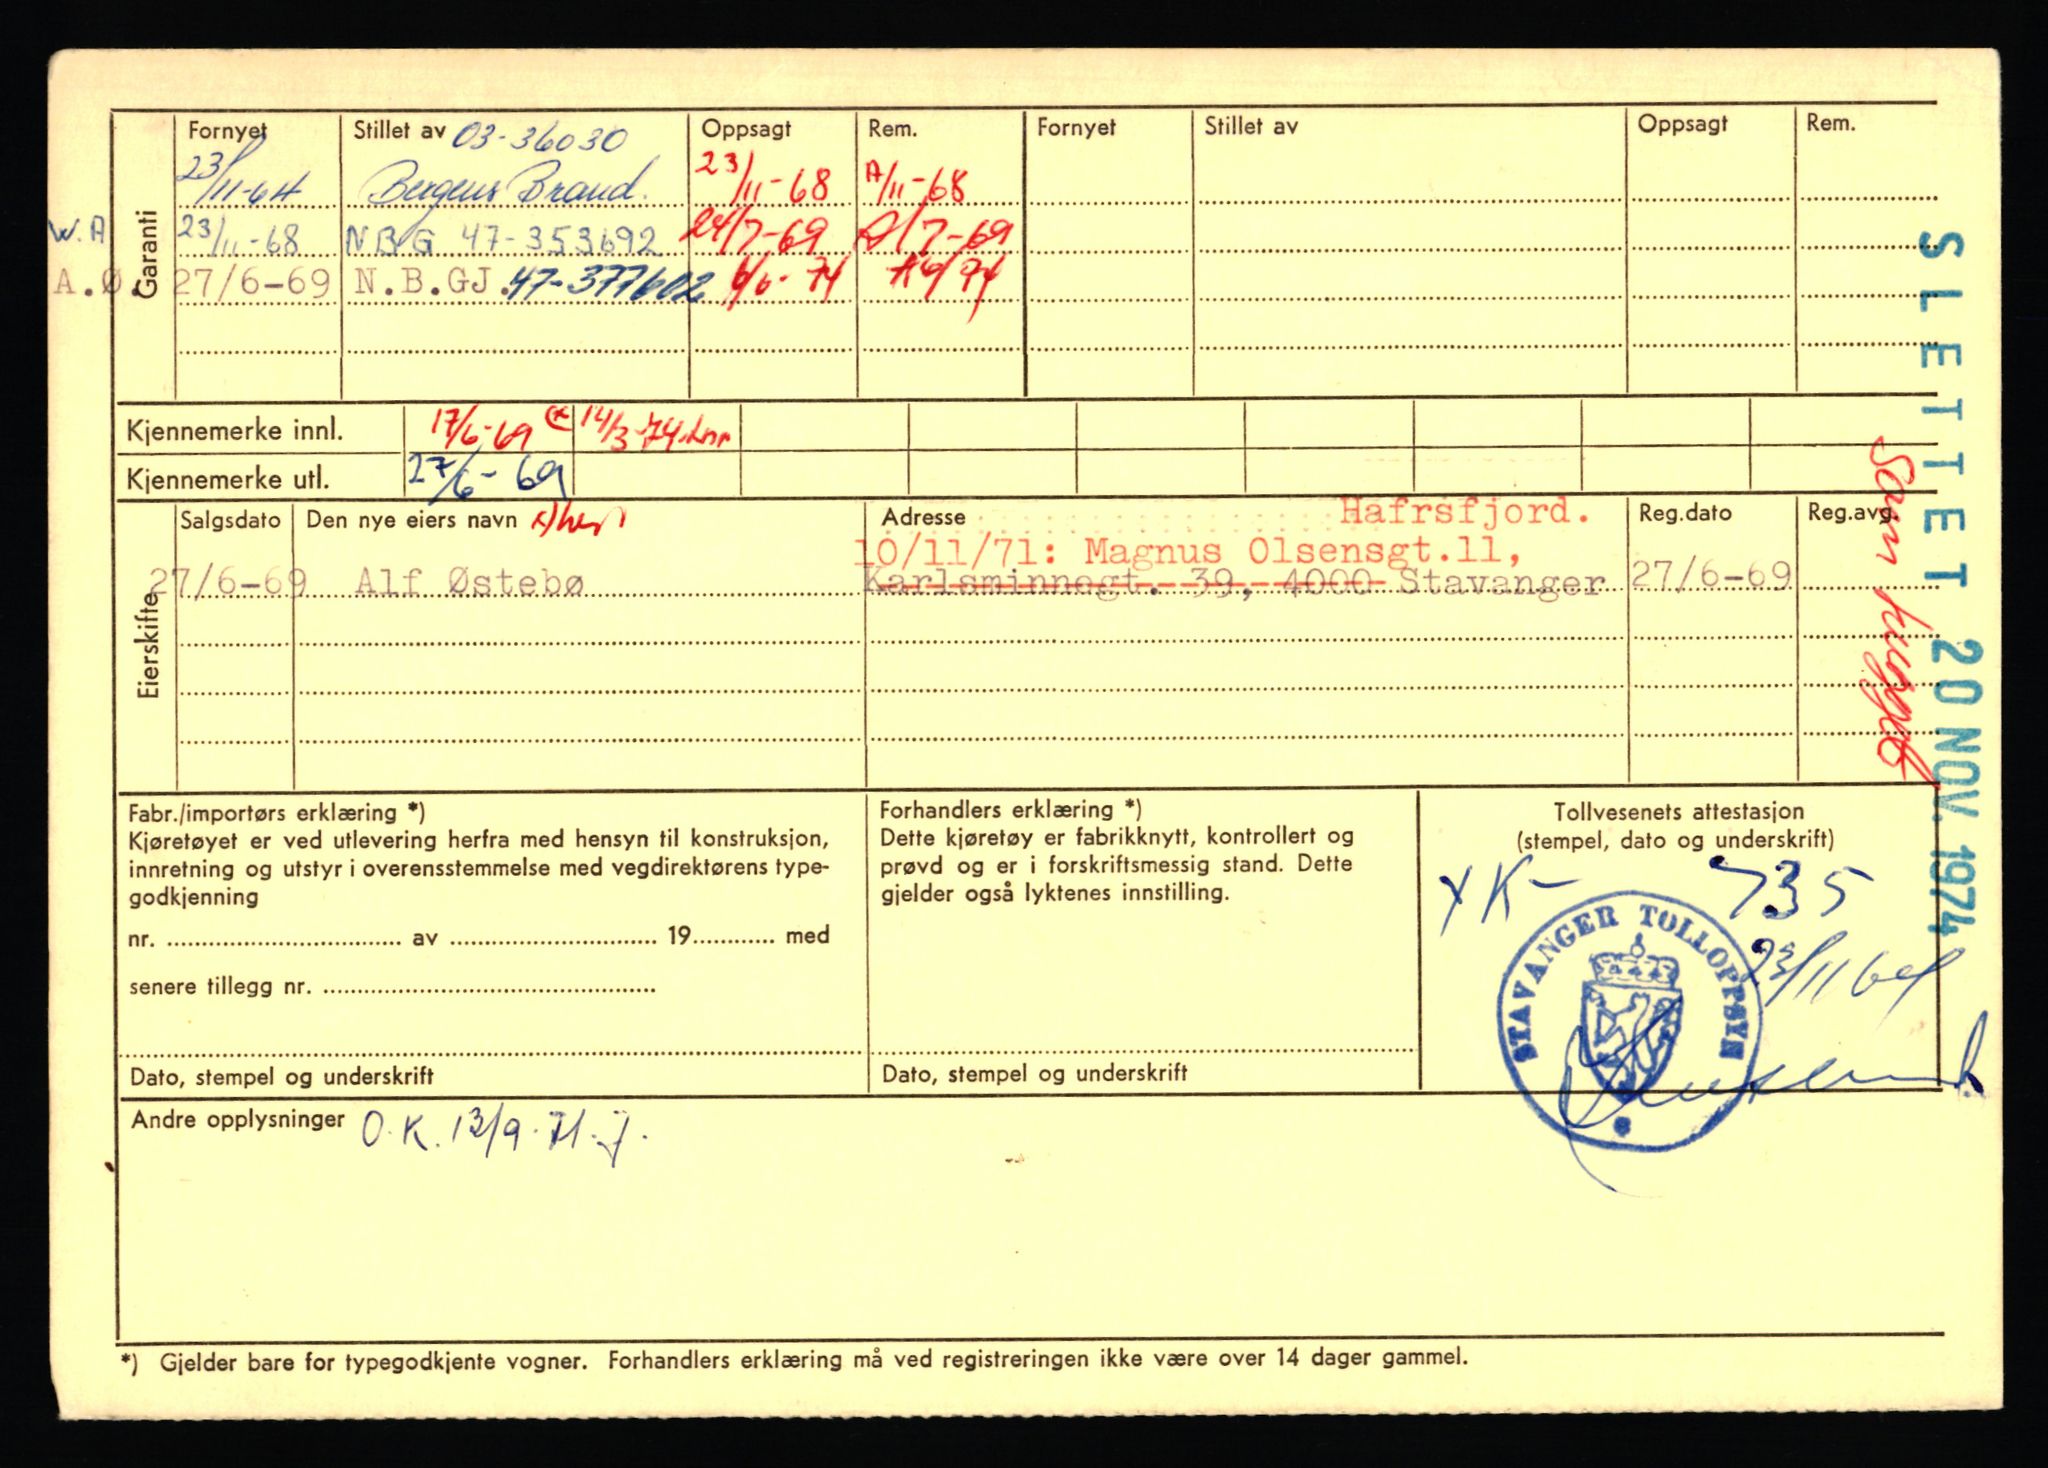 Garanti
Fornyet Stillet av 03-36030 Oppsagt Rem. Fornyet Stillet av Oppsagt Rem.
23/11-64 Bergens Brand. 23/11-68 A/11-68
W.A 23/11-68 NBG 47-353692 24/7-69 A/7-69
A.Ø. 27/6-69 N.B.GJ. 47-377602 6/6-74 A6/74
Kjennemerke innl. 17/6-69 (x 14/3-74
Kjennemerke utl. 27/6-69
Eierskifte
Salgsdato Den nye eiers navn Adresse Hafrsfjord. Reg.dato Reg.avg.
10/11/71: Magnus Olsensgt.11,
27/6-69 Alf Østebø Karlsminnegt. 39, 4000 Stavanger 27/6-69
SLETTET 20 NOV. 1974
Som hugget
Fabr./importørs erklæring *)
Kjøretøyet er ved utlevering herfra med hensyn til konstruksjon,
innretning og utstyr i overensstemmelse med vegdirektørens type-
godkjenning
nr. .............................. av .............................. 19............ med
senere tillegg nr. ................................................
Dato, stempel og underskrift
Forhandlers erklæring *)
Dette kjøretøy er fabrikknytt, kontrollert og
prøvd og er i forskriftsmessig stand. Dette
gjelder også lyktenes innstilling.
Dato, stempel og underskrift
Tollvesenets attestasjon
(stempel, dato og underskrift)
x K- 735
23/11 64
STAVANGER TOLLOPPSYN
Andre opplysninger O.K. 13/9-71.J.
*) Gjelder bare for typegodkjente vogner. Forhandlers erklæring må ved registreringen ikke være over 14 dager gammel.